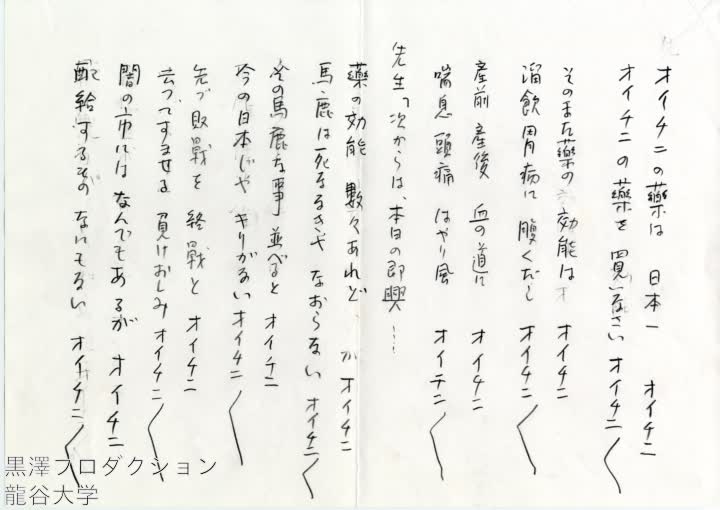 オイチニの薬は 日本一 オイチニ
オイチニの薬を 買いなさい オイチニ〳〵
そのまた薬の効能は オイチニ
溜飲胃病に 腹くだし オイチニ〳〵
産前 産後 血の道に オイチニ
喘息 頭痛 はやり風 オイチニ〳〵
先生「次からは、本日の即興……
薬の効能 数々あれど が オイチニ
馬鹿は死なゝきや なおらない オイチニ〳〵
その馬鹿な事 並べると オイチニ
今の日本じや キリがない オイチニ〳〵
先づ 敗戦を 終戦と オイチニ
云つてすませる 負けおしみ オイチニ〳〵
闇の市には なんでもあるが オイチニ
配給するもの なにもない オイチニ〳〵
黒澤プロダクション
龍谷大学